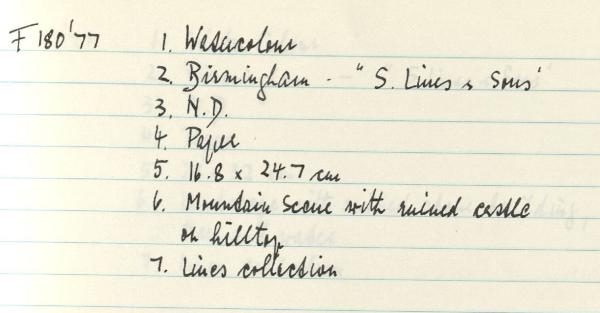 F180'77 1. Watercolour
2. Birmingham - "S. Lines & Sons"
3. N.D.
4. Paper
5. 16.8 x 24.7 cm
6. Mountain Scene with ruined castle
on hilltop
7. Lines collection